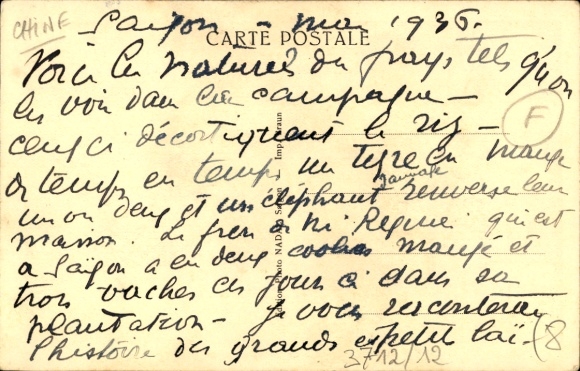 CHINE
Saïgon - mai 1936.
CARTE POSTALE
Voici les natures du pays tels qu'on
les voit dans les campagne -
ceux ci décortiquent le riz -
F
de temps en temps un tigre en mange
un ou deux et un éléphant sauvage renverse leur
maison. Le frère de Mr Regnié qui est
a Saïgon a eu deux cochons mangé et
trois vaches ces jours ci dans sa
plantation - je vous raconterai
l'histoire des grands et petits laï - (8
3712/12
Photo NADAL